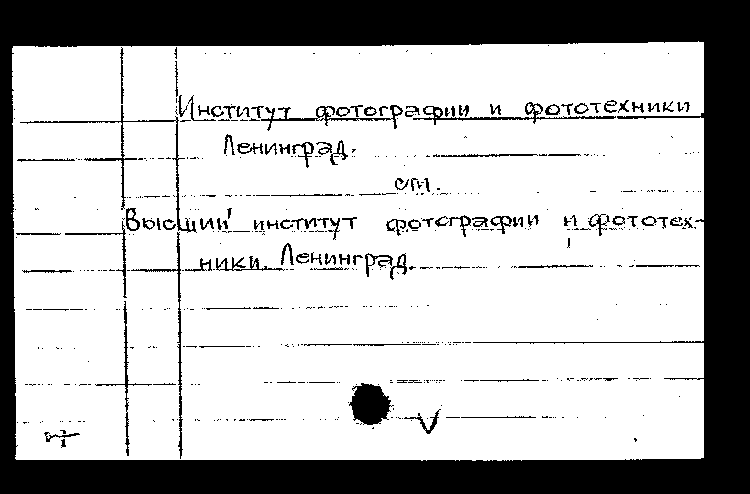 Институт фотографии и фототехники.
Ленинград.
см.
Высший институт фотографии и фототех-
ники. Ленинград.
V